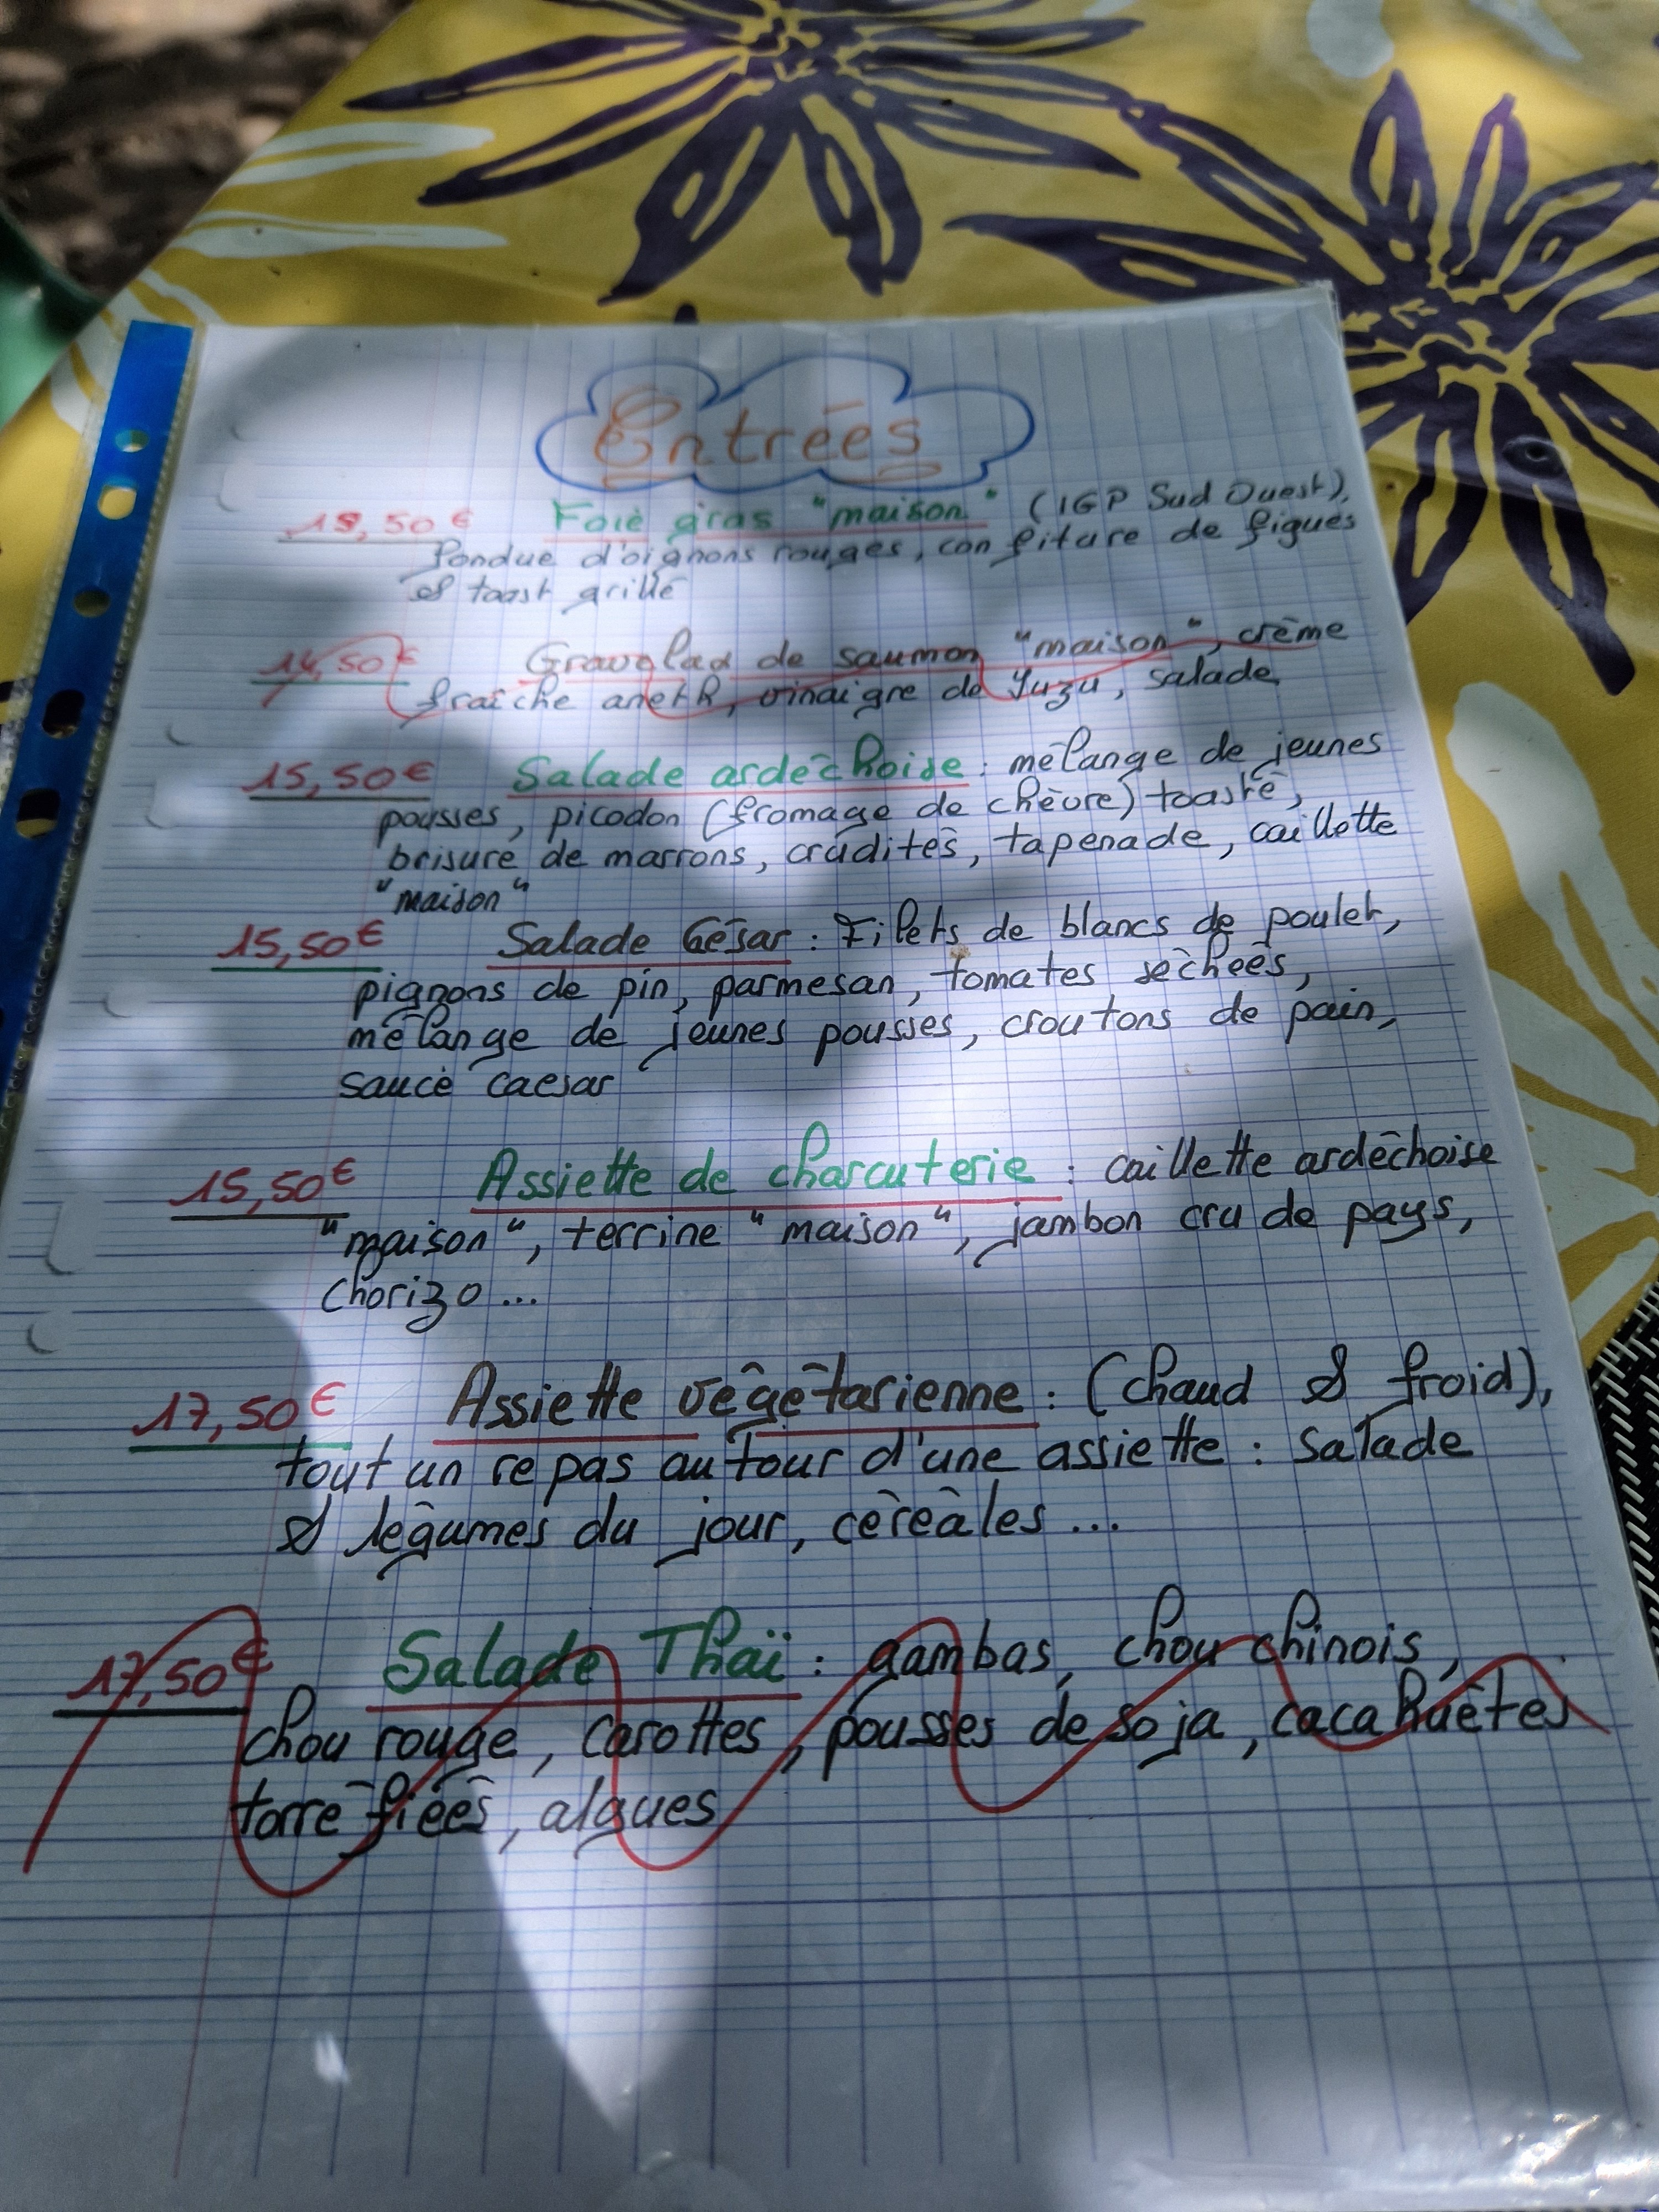 Entrées
18,50€ Foie gras "maison" (IGP Sud Ouest),
fondue d'oignons rouges, confiture de figues
& toast grillé
14,50€ Gravelax de saumon "maison", crème
fraîche aneth, vinaigre de Yuzu, salade
15,50€ Salade ardéchoise : mélange de jeunes
pousses, picodon (fromage de chèvre) toasté,
brisure de marrons, crudités, tapenade, caillette
"maison"
15,50€ Salade César : Filets de blancs de poulet,
pignons de pin, parmesan, tomates séchées,
mélange de jeunes pousses, croutons de pain,
sauce caesar
15,50€ Assiette de charcuterie : caillette ardéchoise
"maison", terrine "maison", jambon cru de pays,
chorizo ...
17,50€ Assiette végétarienne : (chaud & froid),
tout un repas autour d'une assiette : salade
& légumes du jour, céréales ...
17,50€ Salade Thaï : gambas, chou chinois,
chou rouge, carottes, pousses de soja, cacahuètes
torréfiées, algues